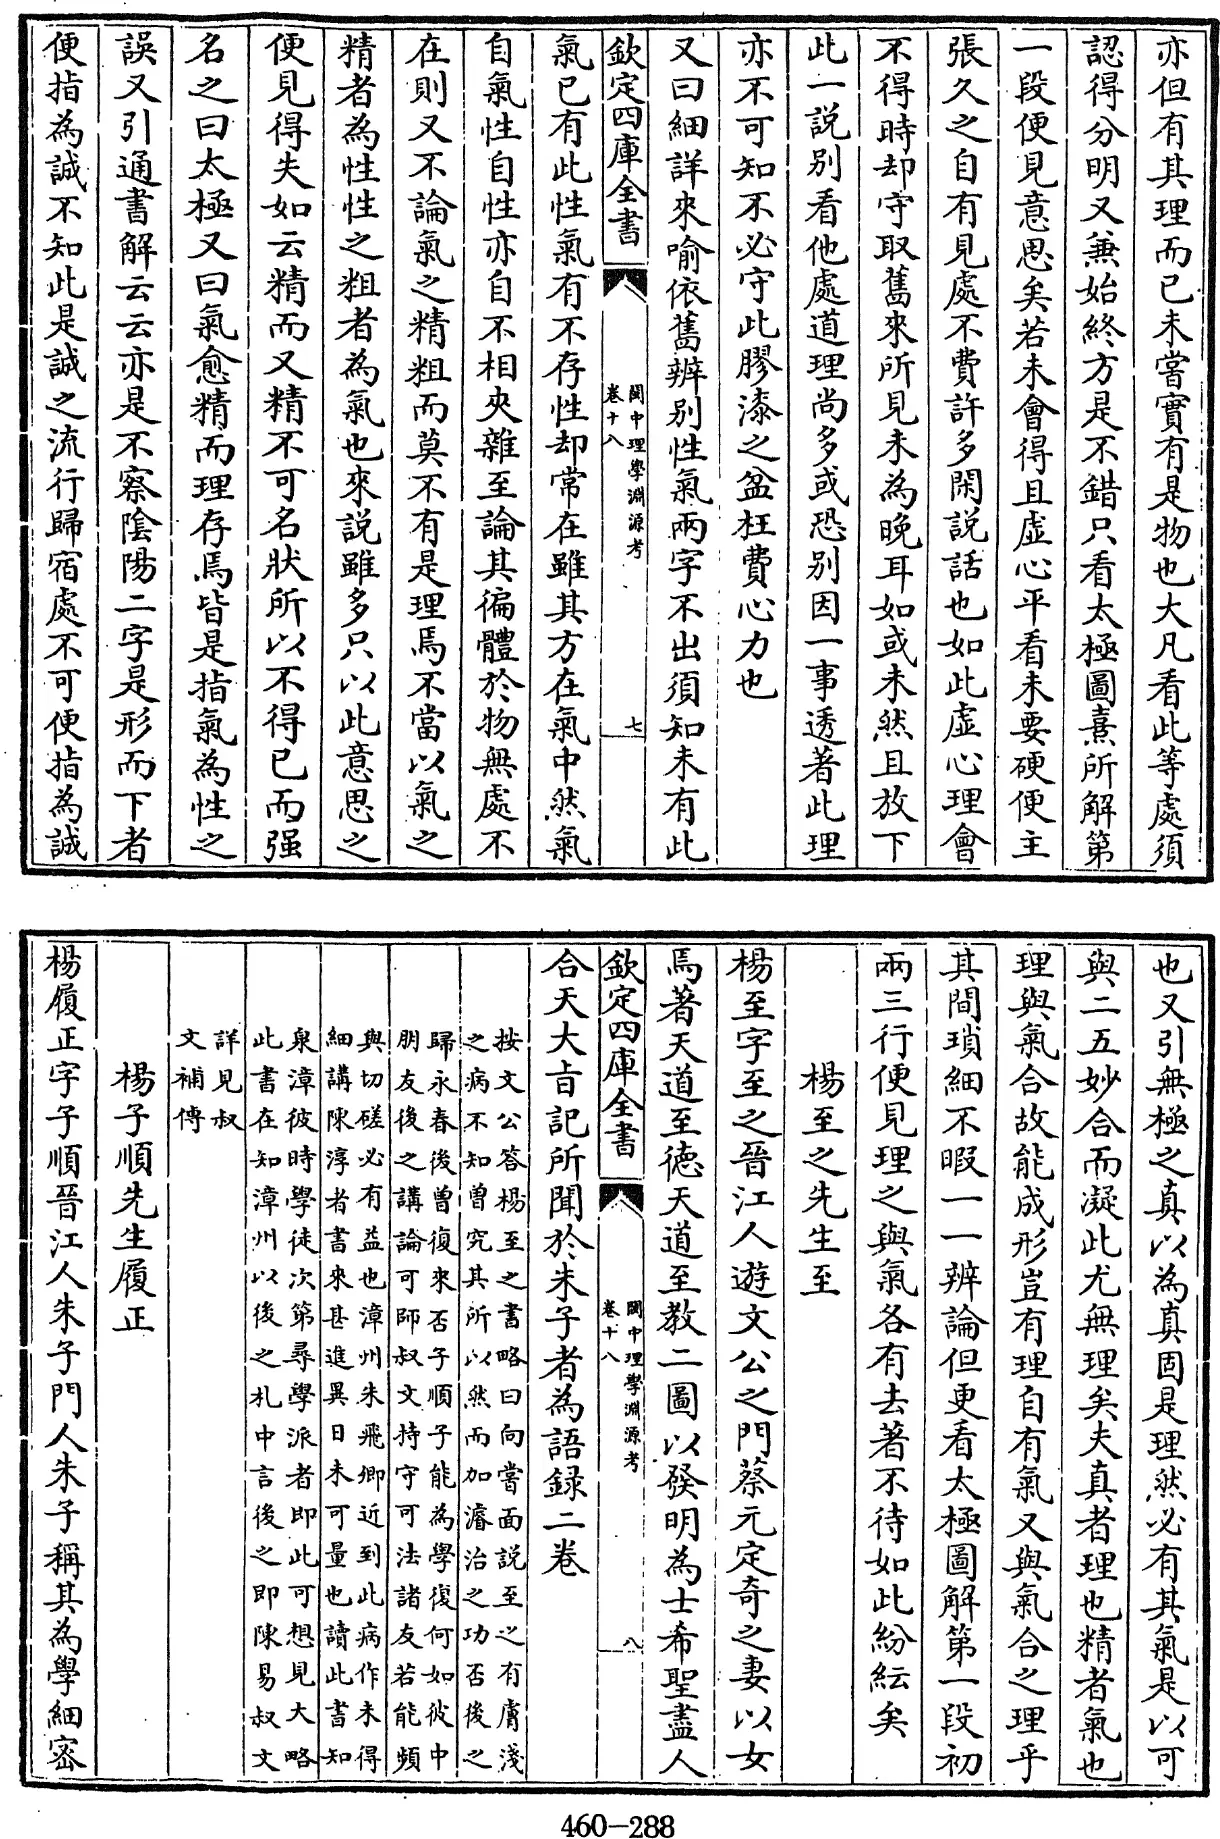 亦但有其理而已未嘗實有是物也大凡看此等處須
認得分明又兼始終方是不錯只看太極圖熹所解第
一段便見意思矣若未會得且虛心平看未要硬便主
張久之自有見處不費許多閑說話也如此虛心理會
不得時却守取舊來所見未為晚耳如或未然且放下
此一說别看他處道理尚多或恐别因一事透著此理
亦不可知不必守此膠漆之盆枉費心力也
又曰細詳來喻依舊辨别性氣兩字不出須知未有此
欽定四庫全書
閩中理學淵源考
卷十八
七
氣已有此性氣有不存性却常在雖其方在氣中然氣
自氣性自性亦自不相夾雜至論其徧體於物無處不
在則又不論氣之精粗而莫不有是理焉不當以氣之
精者為性性之粗者為氣也來說雖多只以此意思之
便見得失如云精而又精不可名狀所以不得已而强
名之曰太極又曰氣愈精而理存焉皆是指氣為性之
誤又引通書解云云亦是不察陰陽二字是形而下者
便指為誠不知此是誠之流行歸宿處不可便指為誠
也又引無極之真以為真固是理然必有其氣是以可
與二五妙合而凝此尤無理矣夫真者理也精者氣也
理與氣合故能成形豈有理自有氣又與氣合之理乎
其間瑣細不暇一一辨論但更看太極圖解第一段初
兩三行便見理之與氣各有去著不待如此紛紜矣
楊至之先生至
楊至字至之晉江人遊文公之門蔡元定奇之妻以女
焉著天道至徳天道至教二圖以發明為士希聖盡人
欽定四庫全書
閩中理學淵源考
卷十八
八
合天大㫖記所聞於朱子者為語録二卷
按文公答楊至之書略曰向嘗面說至之有膚淺
之病不知曽究其所以然而加濬治之功否後之
歸永春後曽復來否子順子能為學復何如彼中
朋友後之講論可師叔文持守可法諸友若能頻
與切磋必有益也漳州朱飛卿近到此病作未得
細講陳淳者書來甚進異日未可量也讀此書知
泉漳彼時學徒次第尋學派者即此可想見大略
此書在知漳州以後之札中言後之即陳易叔文
詳見叔
文補傳
楊子順先生履正
楊履正字子順晉江人朱子門人朱子稱其為學細宻
460-288